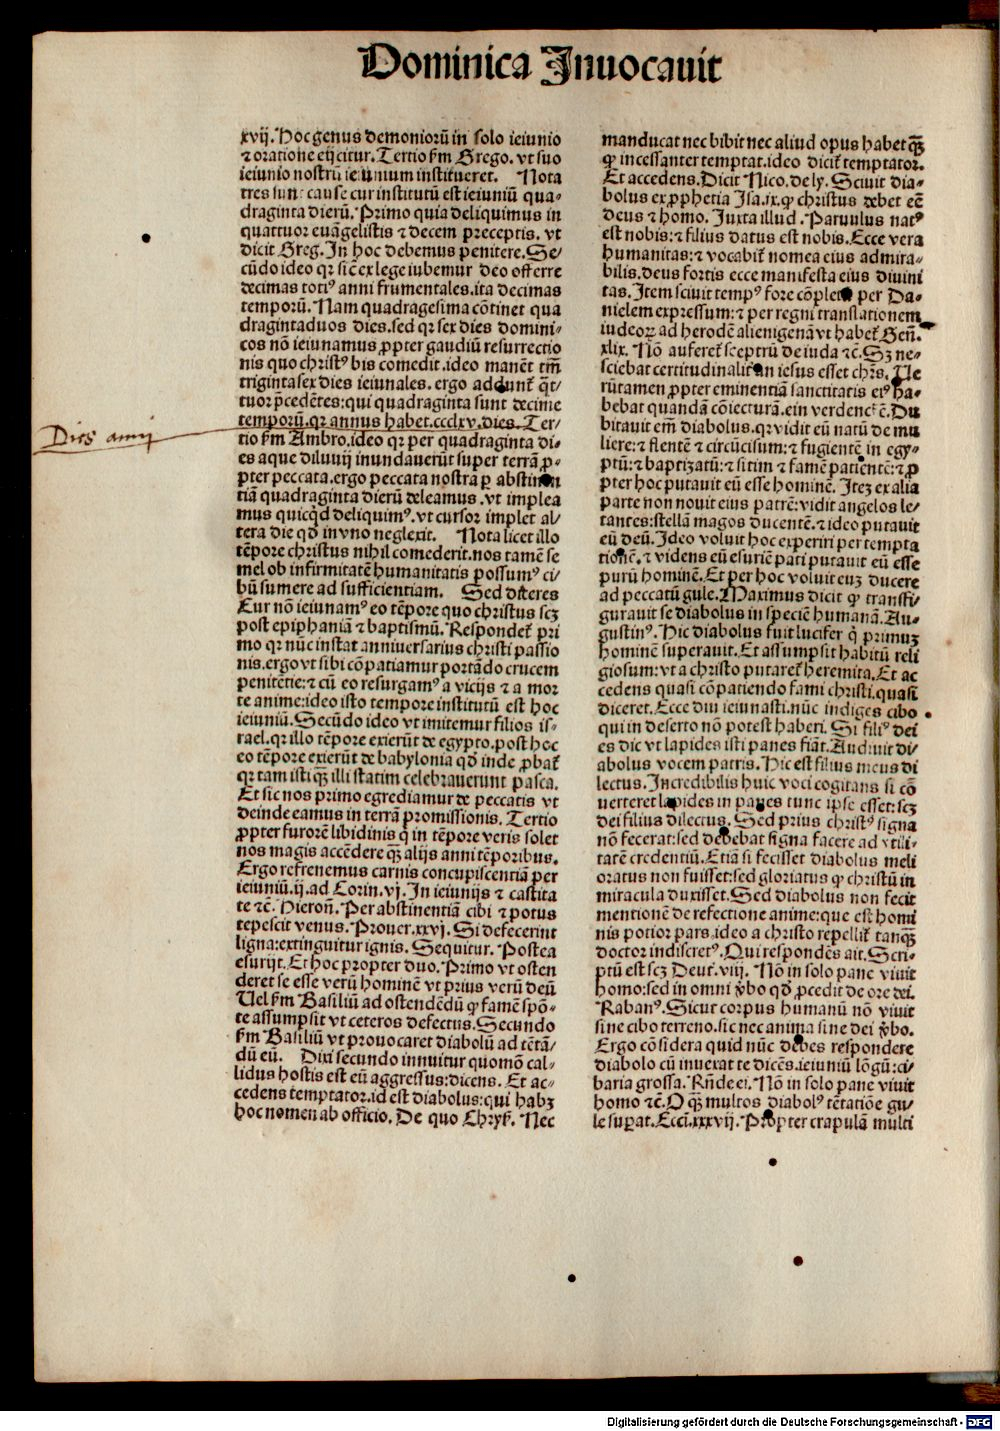 Dominica Inuocauit
xvij. Hoc genus demoniorū in solo ieiunio
⁊ oratione eijcitur. Tertio ẜm Grego. vt suo
ieiunio nostrū ieiunium institueret. Nota
tres sunt cause cur institutū est ieiuniū qua-
draginta dierū. Primo quia deliquimus in
quattuor euāgelistis ⁊ decem preceptis. vt
dicit Greg. In hoc debemus penitere. Se-
cūdo ideo qꝛ sic̄ ex lege iubemur deo offerre
decimas totiꝰ anni frumentales. ita decimas
temporū. Nam quadragesima cōtinet qua
dragintaduos dies. sed qꝛ sex dies domini-
cos nō ieiunamus ꝓpter gaudiū resurrectio
nis quo christꝰ bis comedit. ideo manēt tm̄
trigintasex dies ieiunales. ergo addunt̄ q̄t/
tuor p̄cedētes: qui quadraginta sunt decime
temporū. qꝛ annus habet .ccclxv. dies. Ter-
Dies anni
tio ẜm Ambro. ideo qꝛ per quadraginta di-
es aque diluuij inundauerūt super terrā ꝓ-
pter peccata. ergo peccata nostra ꝑ abstinen
tiā quadraginta dierū deleamus. vt implea
mus quicq̄d deliquimꝰ. vt cursor implet al-
tera die qd̄ in vno neglexit. Nota licet illo
tēpore christus nihil comederit. nos tamē se
mel ob infirmitatē humanitatis possumꝰ ci-
bū sumere ad sufficientiam. Sed diceres
Cur nō ieiunamꝰ eo tēpore quo christus scꝫ
post epiphaniā ⁊ baptismū. Respondet̄ pri
mo qꝛ nūc instat anniuersarius christi passio
nis. ergo vt sibi cōpatiamur portādo crucem
penitētie: ⁊ cū eo resurgamꝰ a vicijs ⁊ a mor
te anime: ideo isto tempore institutū est hoc
ieiuniū. Secūdo ideo vt imitemur filios is-
rael. qꝛ illo tēpore exierūt de egypto. post hoc
eo tēpore exierūt de babylonia qd̄ inde ꝓbat̄
qꝛ tam isti qꝫ illi statim celebrauerunt pasca.
Et sic nos primo egrediamur de peccatis vt
deinde eamus in terrā promissionis. Tertio
ꝓpter furorē libidinis q̄ in tēpore veris solet
nos magis accēdere qꝫ alijs anni tēporibus.
Ergo refrenemus carnis concupiscentiā per
ieiuniū. ij. ad Corin. vj. In ieiunijs ⁊ castita
te ⁊c̄. Hieron̄. Per abstinentiā cibi ⁊ potus
tepescit venus. Prouer. xxvj. Si defecerint
ligna: extinguitur ignis. Sequitur. Postea
esurijt. Et hoc propter duo. Primo vt osten
deret se esse verū hominē vt prius verū deū
Uel ẜm Basiliū ad ostendēdū ꝙ famē spō-
te assumpsit vt ceteros defectus. Secundo
ẜm Basiliū vt prouocaret diabolū ad tētā/
dū eū. Dixi secundo innuitur quomō cal-
lidus hostis est eū aggressus: dicens. Et ac-
cedens temptator. id est diabolus: qui habꝫ
hoc nomen ab officio. De quo Chrys̄. Nec
manducat nec bibit nec aliud opus habet qꝫ
ꝙ incessanter temptat. ideo dicit̄ temptator.
Et accedens. Dicit Nico. de ly. Sciuit dia-
bolus ex ꝓphetia Isa. ix. ꝙ christus debet eē
deus ⁊ homo. Juxta illud. Paruulus natꝰ
est nobis: ⁊ filius datus est nobis. Ecce vera
humanitas: ⁊ vocabit̄ nomen eius admira-
bilis. deus fortis ecce manifesta eius diuini
tas. Item sciuit tempꝰ fore cōpletū per Da-
nielem expressum: ⁊ per regni translationem
iudeoꝝ ad herodē alienigenā vt habet̄ Gen̄.
xlix. Nō auferet̄ sceptrū de iuda ⁊c̄. Sꝫ ne-
sciebat certitudinalit̄ an iesus esset chr̄s. Ue
rūtamen ꝓpter eminentiā sanctitatis eiꝰ ha-
bebat quandā cōiecturā. ein verdencꝭē. Du
bitauit em̄ diabolus. qꝛ vidit eū natū de mu
liere: ⁊ flentē ⁊ circūcisum: ⁊ fugientē in egy-
ptū: ⁊ baptizatū: ⁊ sitim ⁊ famē patientē: ⁊ ꝓ
pter hoc putauit eū esse hominē. Itez ex alia
parte non nouit eius patrē: vidit angelos le-
tantes: stellā magos ducentē. ⁊ ideo putauit
eū deū. Ideo voluit hoc experiri per tempta
tionē. ⁊ videns eū esuriē pati putauit eū esse
purū hominē. Et per hoc voluit euꝫ ducere
ad peccatū gule. Maximus dicit ꝙ transfi-
gurauit se diabolus in speciē humanā. Au-
gustinꝰ. Hic diabolus fuit lucifer q̄ primuꝫ
hominē superauit. Et assumpsit habitū reli
giosum: vt a christo putaret̄ heremita. Et ac
cedens quasi cōpatiendo fami christi. quasi
diceret. Ecce diu ieiunasti. nūc indiges cibo
qui in deserto nō potest haberi. Si filiꝰ dei
es dic vt lapides isti panes fiāt. Audiuit di-
abolus vocem patris. Hic est filius meus di
lectus. Incredibilis huic voci cogitans si cō
uerteret lapides in panes tunc ipse esset: scꝫ
dei filius dilectus. Sed prius christꝰ signa
nō fecerat: sed debebat signa facere ad vtili-
tatē credentiū. Etiā si fecisset diabolus meli
oratus non fuisset: sed gloriatus ꝙ christū in
miracula duxisset. Sed diabolus non fecit
mentionē de refectione anime: que est homi
nis potior pars. ideo a christo repellit̄ tanqꝫ
doctor indiscretꝰ. Qui respondēs ait. Scri-
ptū est scꝫ Deut̄. viij. Nō in solo pane viuit
homo: sed in omni v̄bo qd̄ ꝓcedit de ore dei.
Rabanꝰ. Sicut corpus humanū nō viuit
sine cibo terreno. sic nec anima sine dei v̄bo.
Ergo cōsidera quid nūc debes respondere
diabolo cū inuexat te dicēs. ieiuniū lōgū: ci-
baria grossa. Rn̄de ei. Nō in solo pane viuit
homo ⁊c̄. O qꝫ multos diabolꝰ tētatiōe gu-
le suꝑat. Eccl̄. xxxvij. Propter crapulā multi
Digitalisierung gefördert durch die Deutsche Forschungsgemeinschaft - DFG